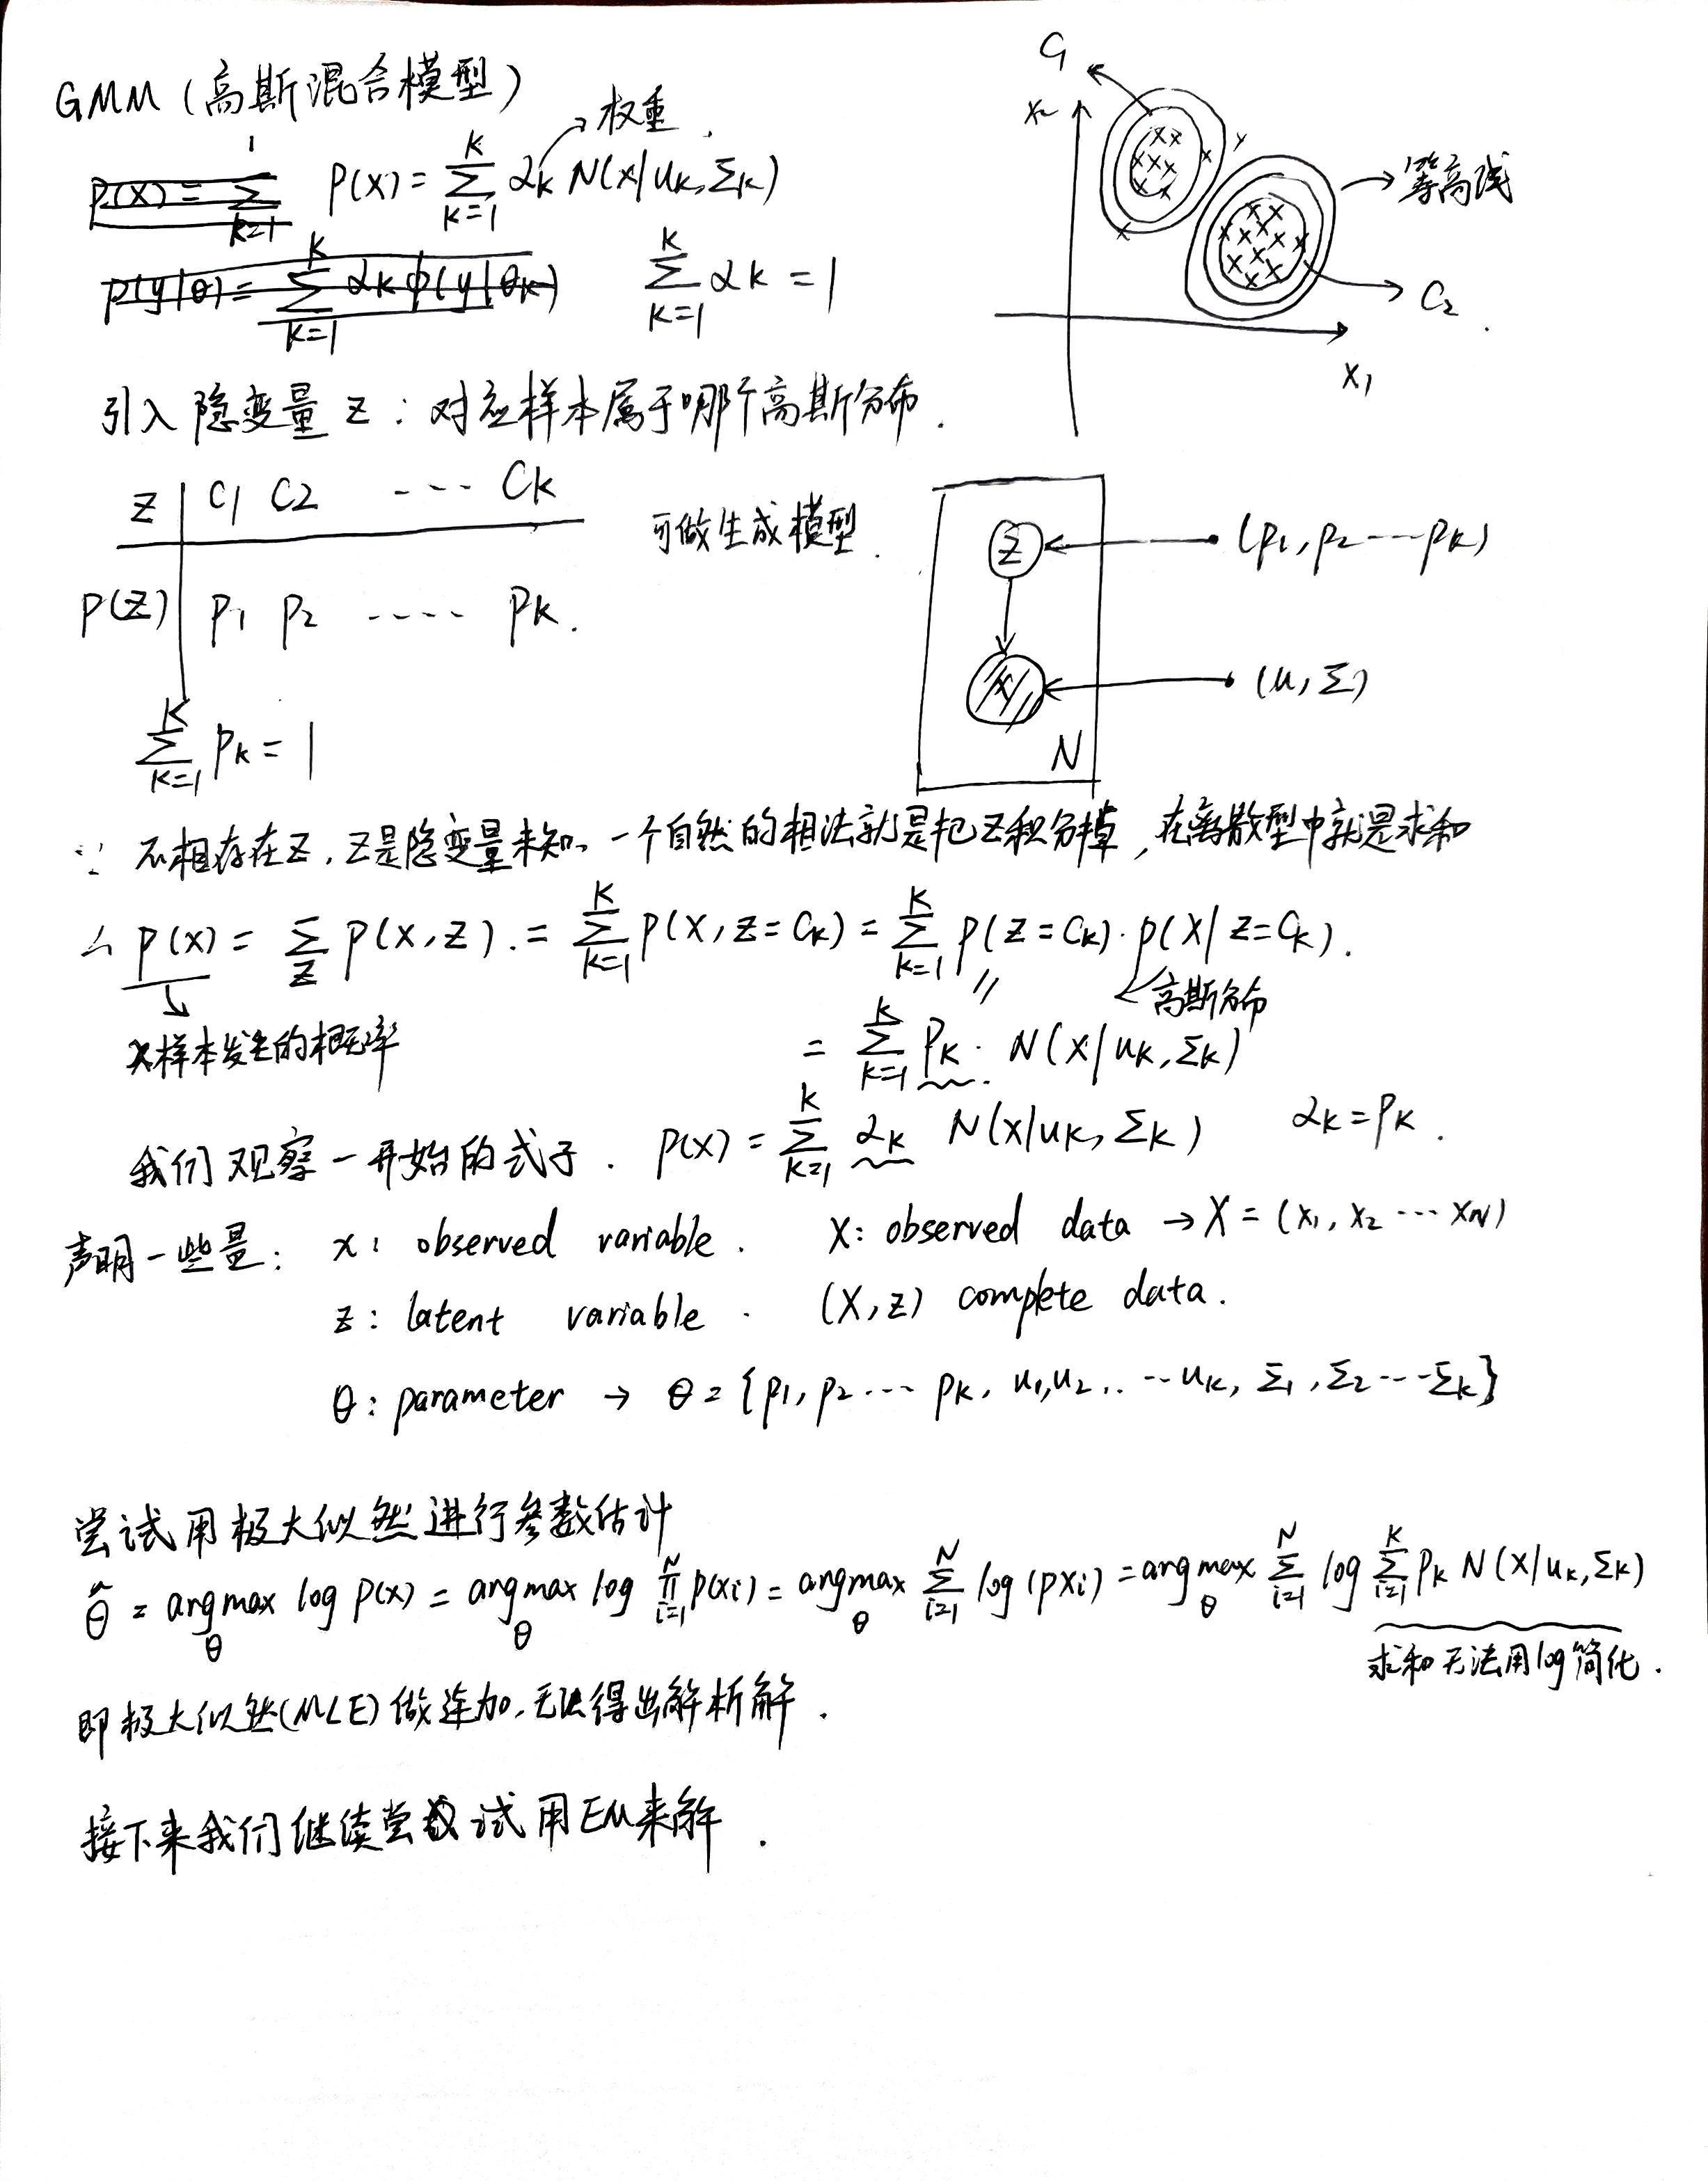 GMM (高斯混合模型)
权重
p(x) = Σ_{k=1}
p(x) = Σ_{k=1}^{K} α_k N(x|u_k, Σ_k)
p(y|θ) = Σ_{k=1}^{K} α_k ϕ(y|θ_k)
Σ_{k=1}^{K} α_k = 1
C1
x2
等高线
C2
x1
引入隐变量 z : 对应样本属于哪个高斯分布.
z | C1 C2 ---- Ck
p(z) | p1 p2 ----- pk.
Σ_{k=1}^{K} p_k = 1
可做生成模型.
z
(p1, p2 ---- pk)
x
(u, Σ)
N
∵ 不相存在z, z是隐变量未知、一个自然的相法就是把z积分掉, 在离散型中就是求和
∴ p(x) = Σ_z p(x, z). = Σ_{k=1}^{K} p(x, z=C_k) = Σ_{k=1}^{K} p(z=C_k)·p(x|z=C_k).
高斯分布
x样本发生的概率
= Σ_{k=1}^{K} p_k · N(x|u_k, Σ_k)
我们观察一开始的式子. p(x) = Σ_{k=1}^{K} α_k N(x|u_k, Σ_k) α_k = p_k.
声明一些量: x: observed variable. X: observed data → X = (x1, x2 ··· xN)
z: latent variable. (X, z) complete data.
θ: parameter → θ = {p1, p2 ···· pk, u1, u2, ·· -- uk, Σ1, Σ2 --- Σk}
尝试用极大似然进行参数估计
θ̂ = argmax_θ log p(x) = argmax_θ log Π_{i=1}^{N} p(xi) = argmax_θ Σ_{i=1}^{N} log (pxi) = argmax_θ Σ_{i=1}^{N} log Σ_{i=1}^{K} p_k N(x|u_k, Σ_k)
求和无法用log简化.
即极大似然(MLE)做连加, 无法得出解析解.
接下来我们继续尝试用EM来解.